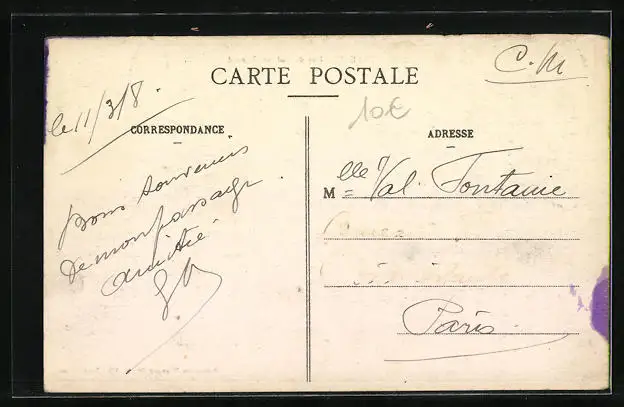 C.M
CARTE POSTALE
10€
le 11/3/8.
CORRESPONDANCE
ADRESSE
Bons souvenirs
de mon passage.
Amitié.
M lle Val. Fontaine
Paris.